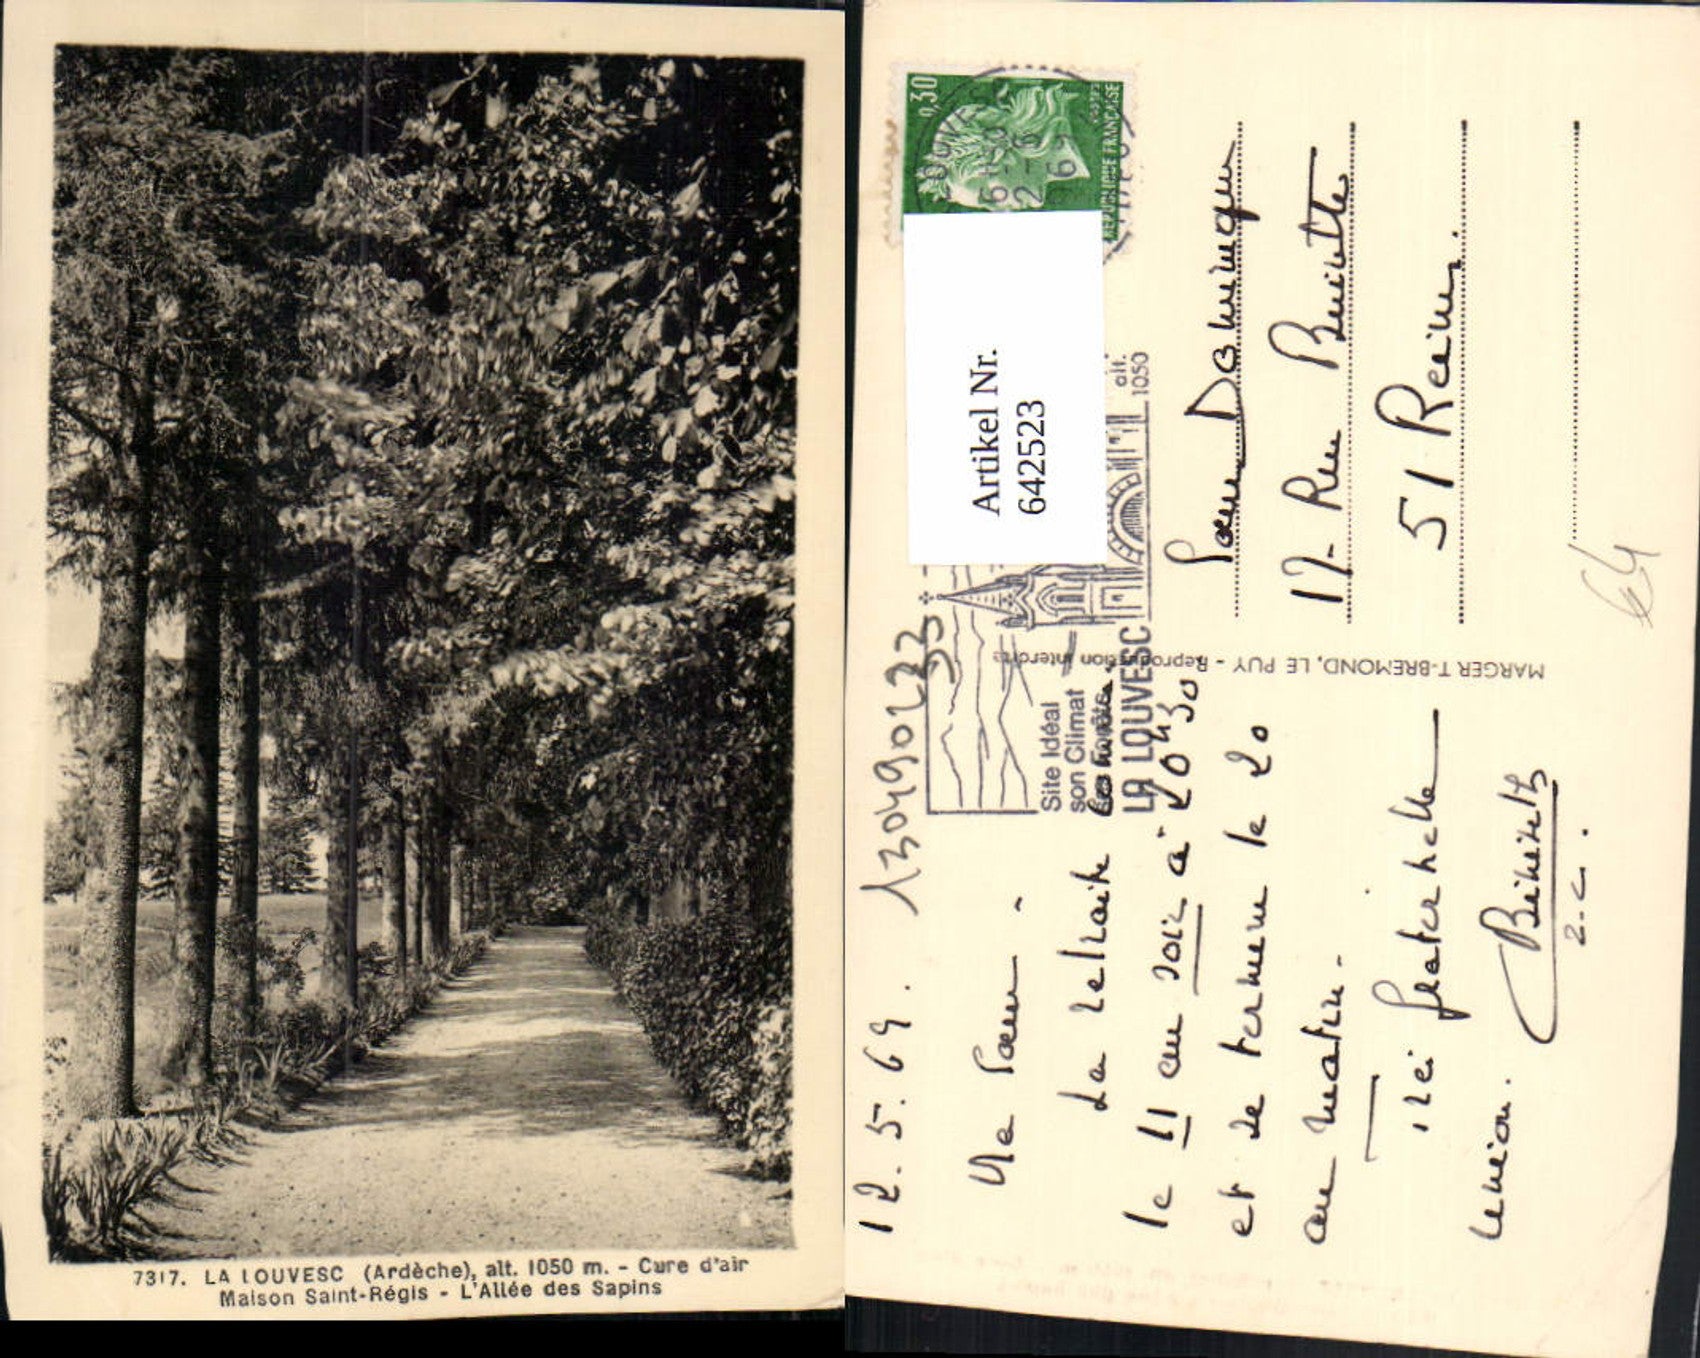 7317. LA LOUVESC (Ardèche), alt. 1050 m. - Cure d'air
Maison Saint-Régis - L'Allée des Sapins
0,30
POSTES
REPUBLIQUE FRANÇAISE
Artikel Nr.
6425523
alt.
1050
Site Idéal
son Climat
ses Forêts
LA LOUVESC
MARGERIT-BREMOND, LE PUY - Reproduction interdite
12.5.69.
Ma Soeur -
La retraite
le 11 au soir à 20h30
et se termine le 20
au matin -
Très fraternelle
union.
Soeur Dominique
17- Rue
51 Reims.
64